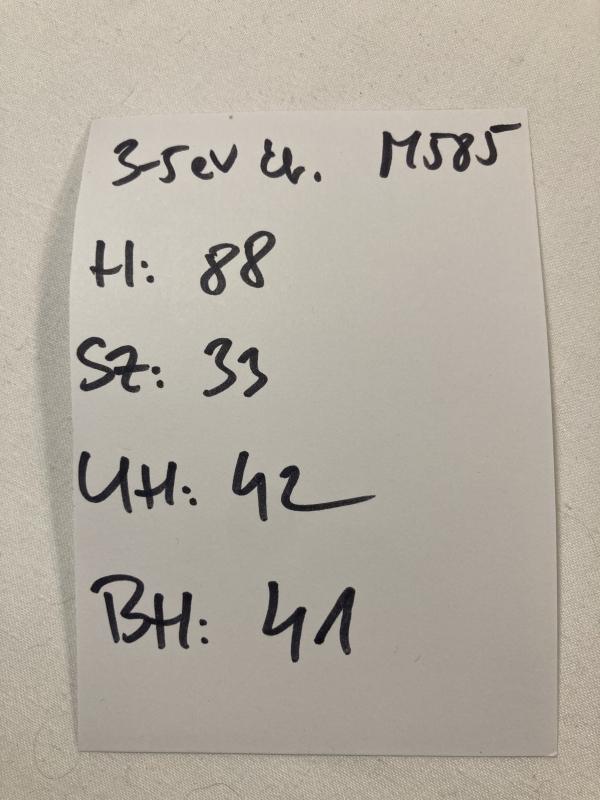 3-5 ev M585
H: 88
SZ: 33
UH: 42
BH: 41